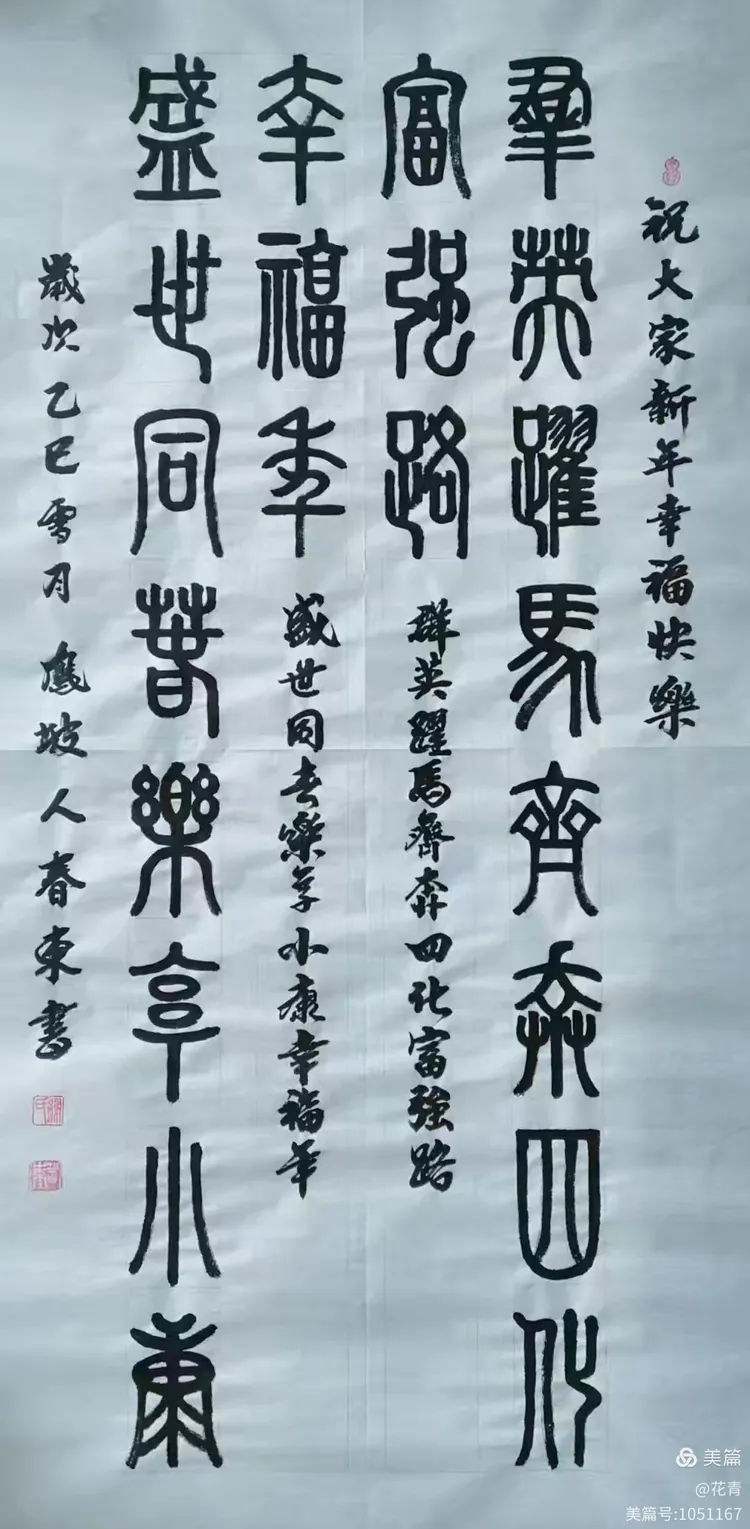 祝大家新年幸福快樂
羣英躍馬齊奔四化
富强路
群英躍馬齊奔四化富強路
幸福年
盛世同春樂享小康幸福年
盛世同春樂享小康
歲次乙巳雪月鳳坡人春東書
美篇
@花青
美篇号:1051167